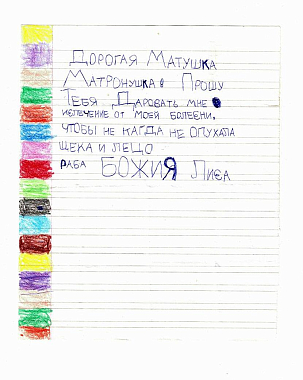 Дорогая Матушка
Матронушка Прошу
Тебя Даровать мне
излечение от моей болезни,
чтобы не кагда не опухала
щека и лецо
раба БОЖИЯ Лиза